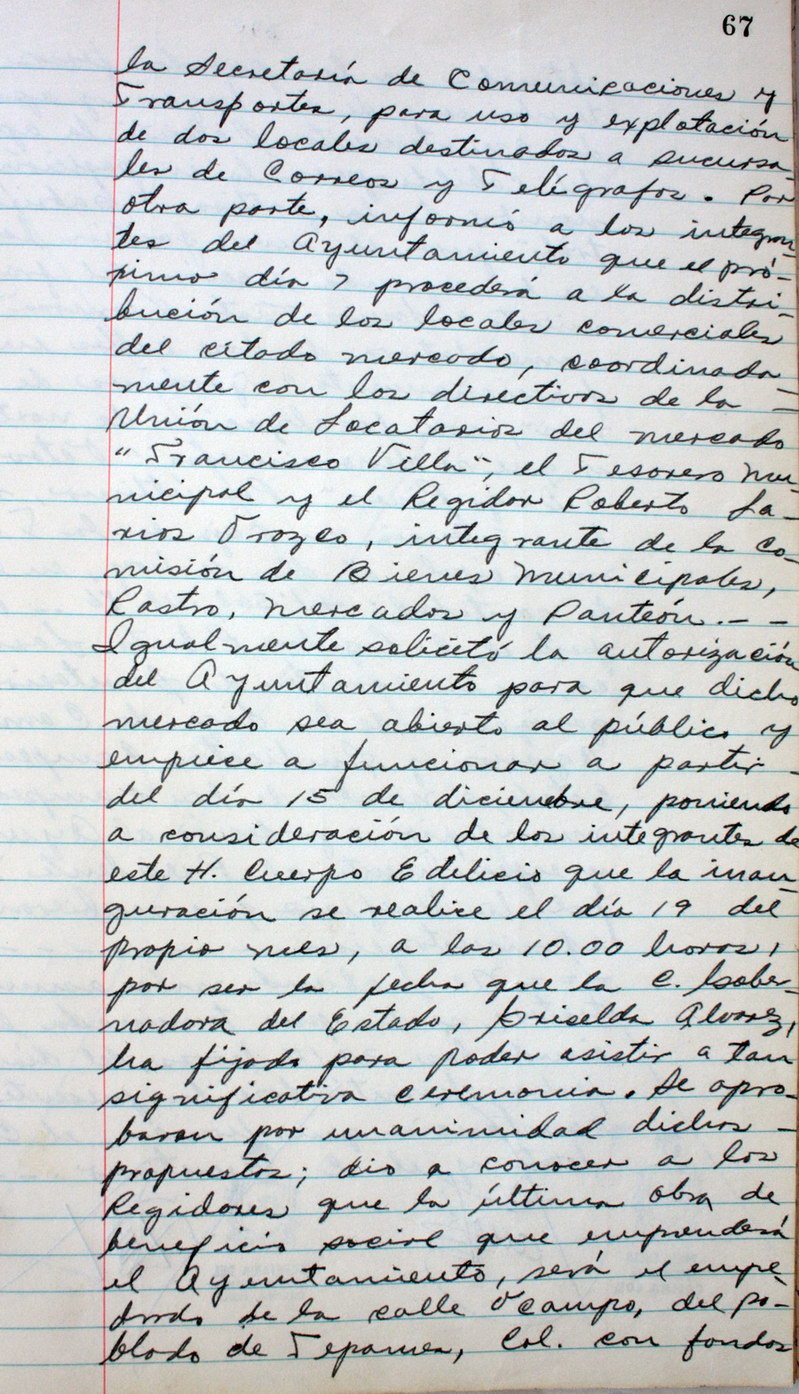 67
la Secretaría de Comunicaciones y
Transportes, para uso y explotación
de dos locales destinados a sucursa-
les de Correos y Telégrafos. Por
otra parte, informó a los integran-
tes del Ayuntamiento que el pró-
ximo día 7 procederá a la distri-
bución de los locales comerciales
del citado mercado, coordinada-
mente con los directivos de la -
Unión de Locatarios del mercado
"Francisco Villa", el Tesorero Mu-
nicipal y el Regidor Roberto La-
rios Orozco, integrante de la Co-
misión de Bienes Municipales,
Rastro, Mercados y Panteón. - -
Igualmente solicitó la autorización
del Ayuntamiento para que dicho
mercado sea abierto al público y
empiece a funcionar a partir -
del día 15 de diciembre, poniendo
a consideración de los integrantes de
este H. Cuerpo Edilicio que la inau-
guración se realice el día 19 del
propio mes, a las 10.00 horas,
por ser la fecha que la C. Gober-
nadora del Estado, Griselda Alvarez,
ha fijado para poder asistir a tan
significativa ceremonia. Se apro-
baron por unanimidad dichas -
propuestas; dio a conocer a los
Regidores que la última obra de
beneficio social que emprenderá
el Ayuntamiento, será el empe-
drado de la calle Ocampo, del po-
blado de Tepames, Col. con fondos